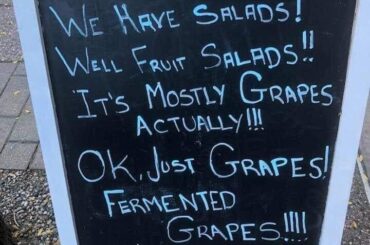 We Have Salads!
Well Fruit Salads!!
It's Mostly Grapes
Actually!!!
Ok, Just Grapes!
Fermented
Grapes!!!!